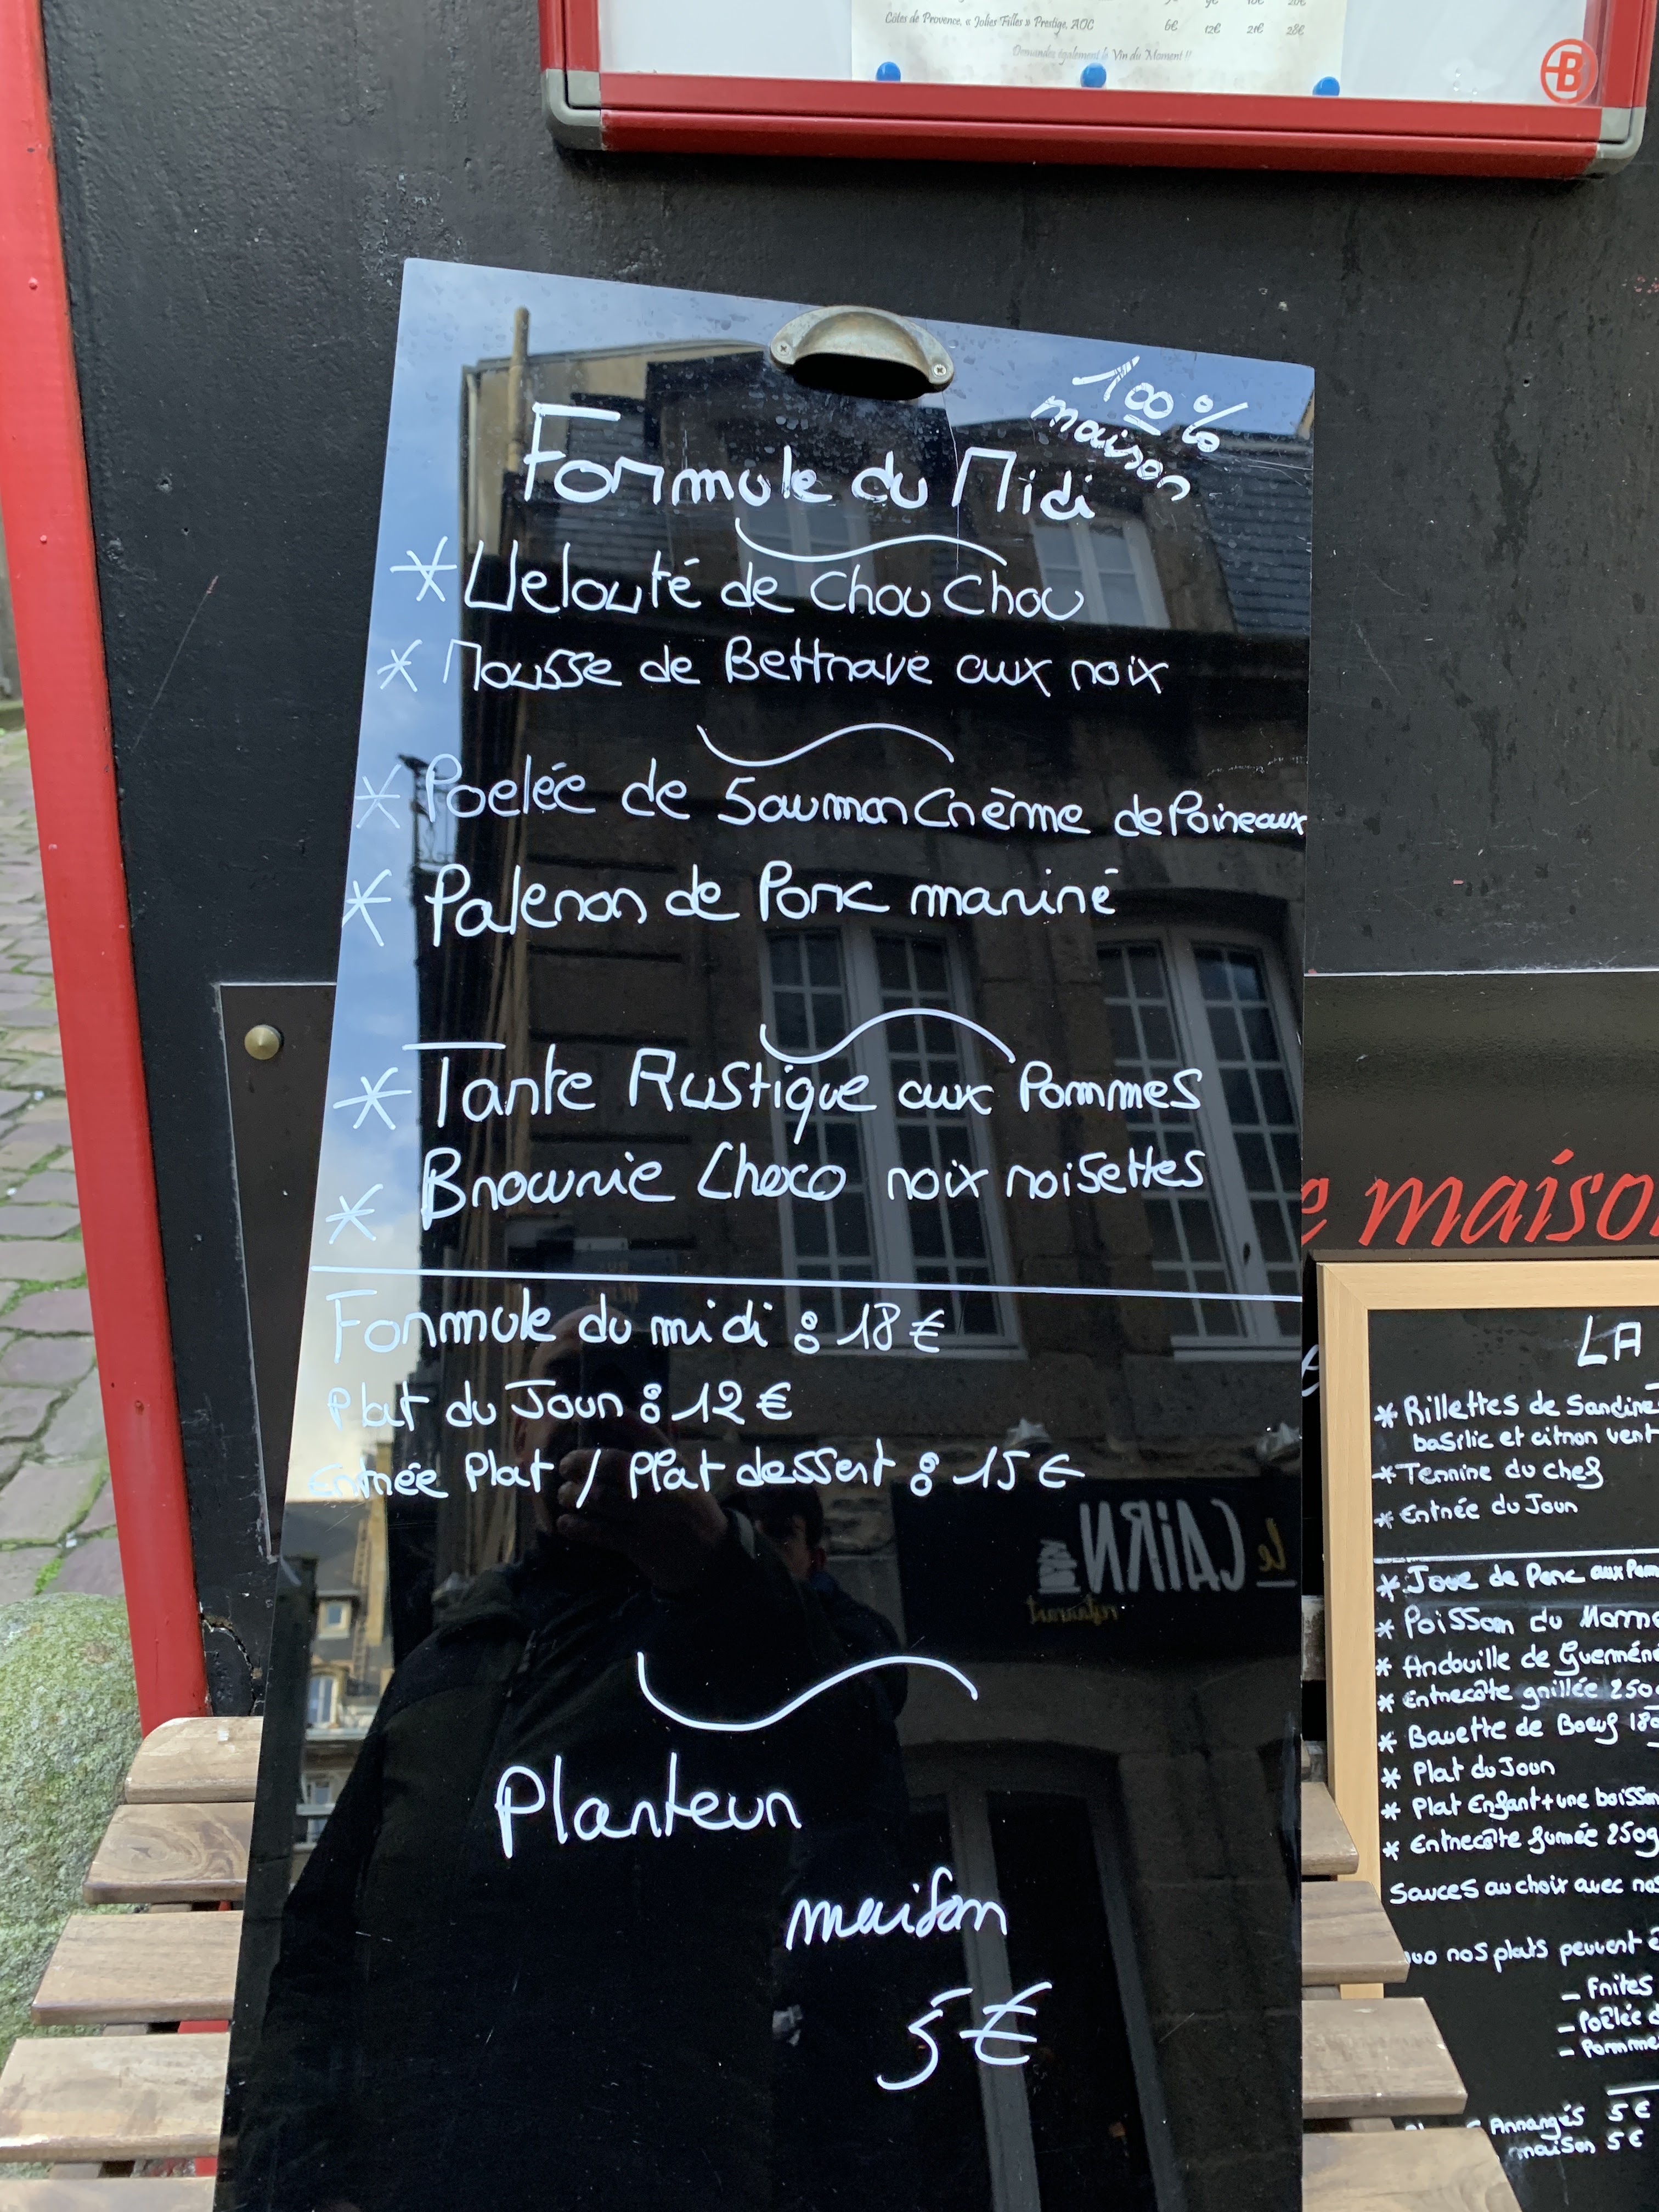 Côtes de Provence, « Jolies Filles » Prestige, AOC 6€ 12€ 21€ 28€
Demandez également le Vin du Moment !!
B
100 %
maison
Formule du Midi
* Velouté de Chou Chou
* Mousse de Bettrave aux noix
* Poelée de Saumon Crème de Poireaux
* Paleron de Porc mariné
* Tarte Rustique aux Pommes
* Brownie Choco noix noisettes
Formule du midi : 18 €
Plat du Jour : 12 €
Entrée Plat / Plat dessert : 15 €
Planteur
maison
5 €
le CAIRN
restaurant
e maiso
LA
* Rillettes de Sardine
basilic et citron vert
* Terrine du chef
* Entrée du Jour
* Joue de Porc aux Pom
* Poisson du Marm
* Andouille de Guerméné
* Entrecôte grillée 250
* Bavette de Boeuf 180
* Plat du Jour
* Plat Enfant + une boisson
* Entrecôte fumée 250g
Sauces au choix avec nos
nos plats peuvent ê
- Frites
- Poêlée d
- Pomme
Arrangés 5 €
maison 5 €